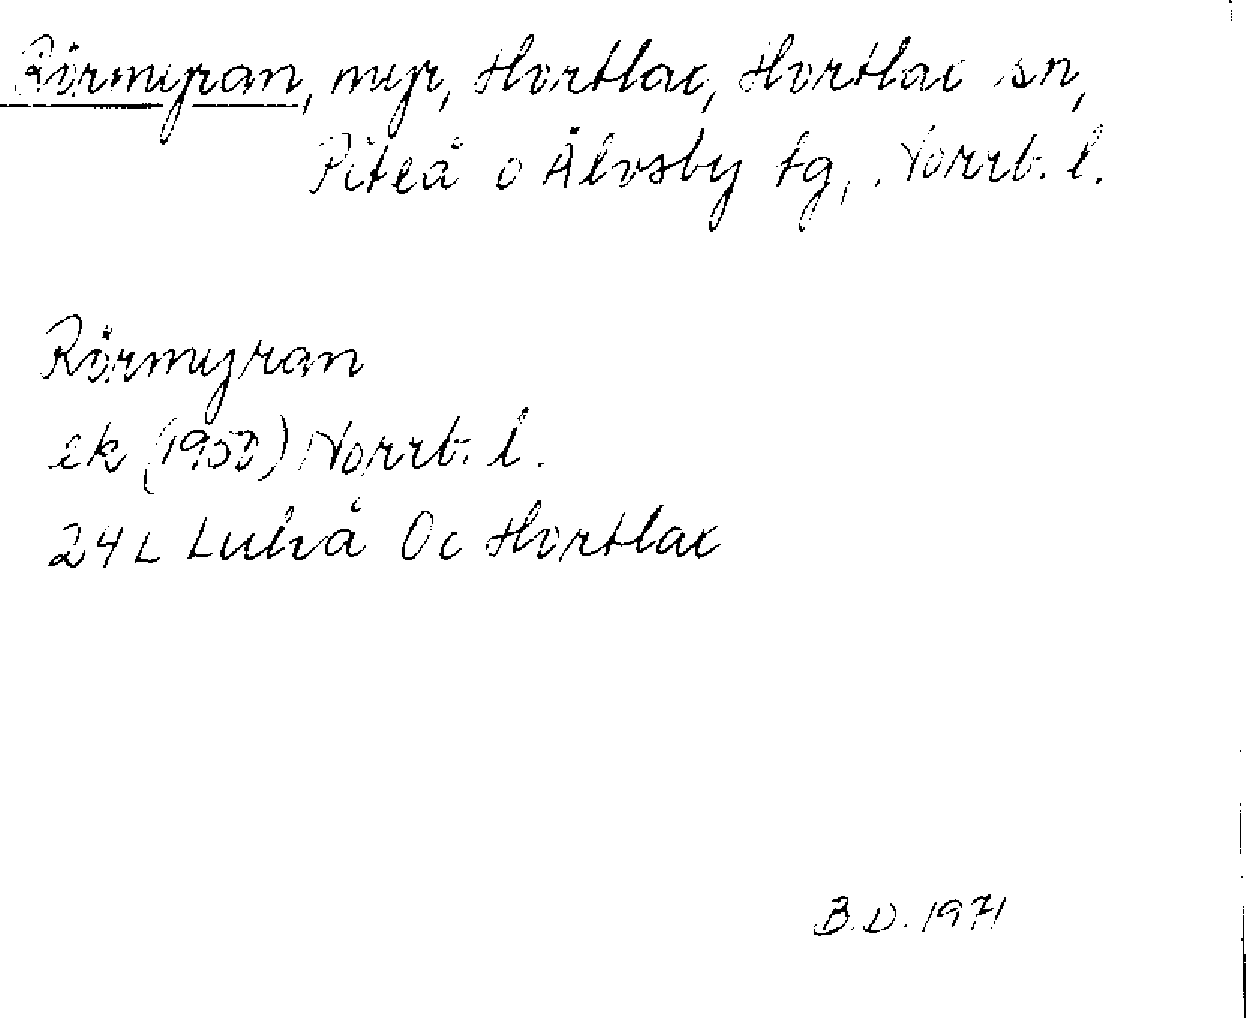 Rörmyran, myr, Hortlax, Hortlax sn,
Piteå o Älvsby tg, Norrb. l.
Rörmyran
ek (1950) Norrb. l.
24L Luleå Oc Hortlax
B.D. 1971